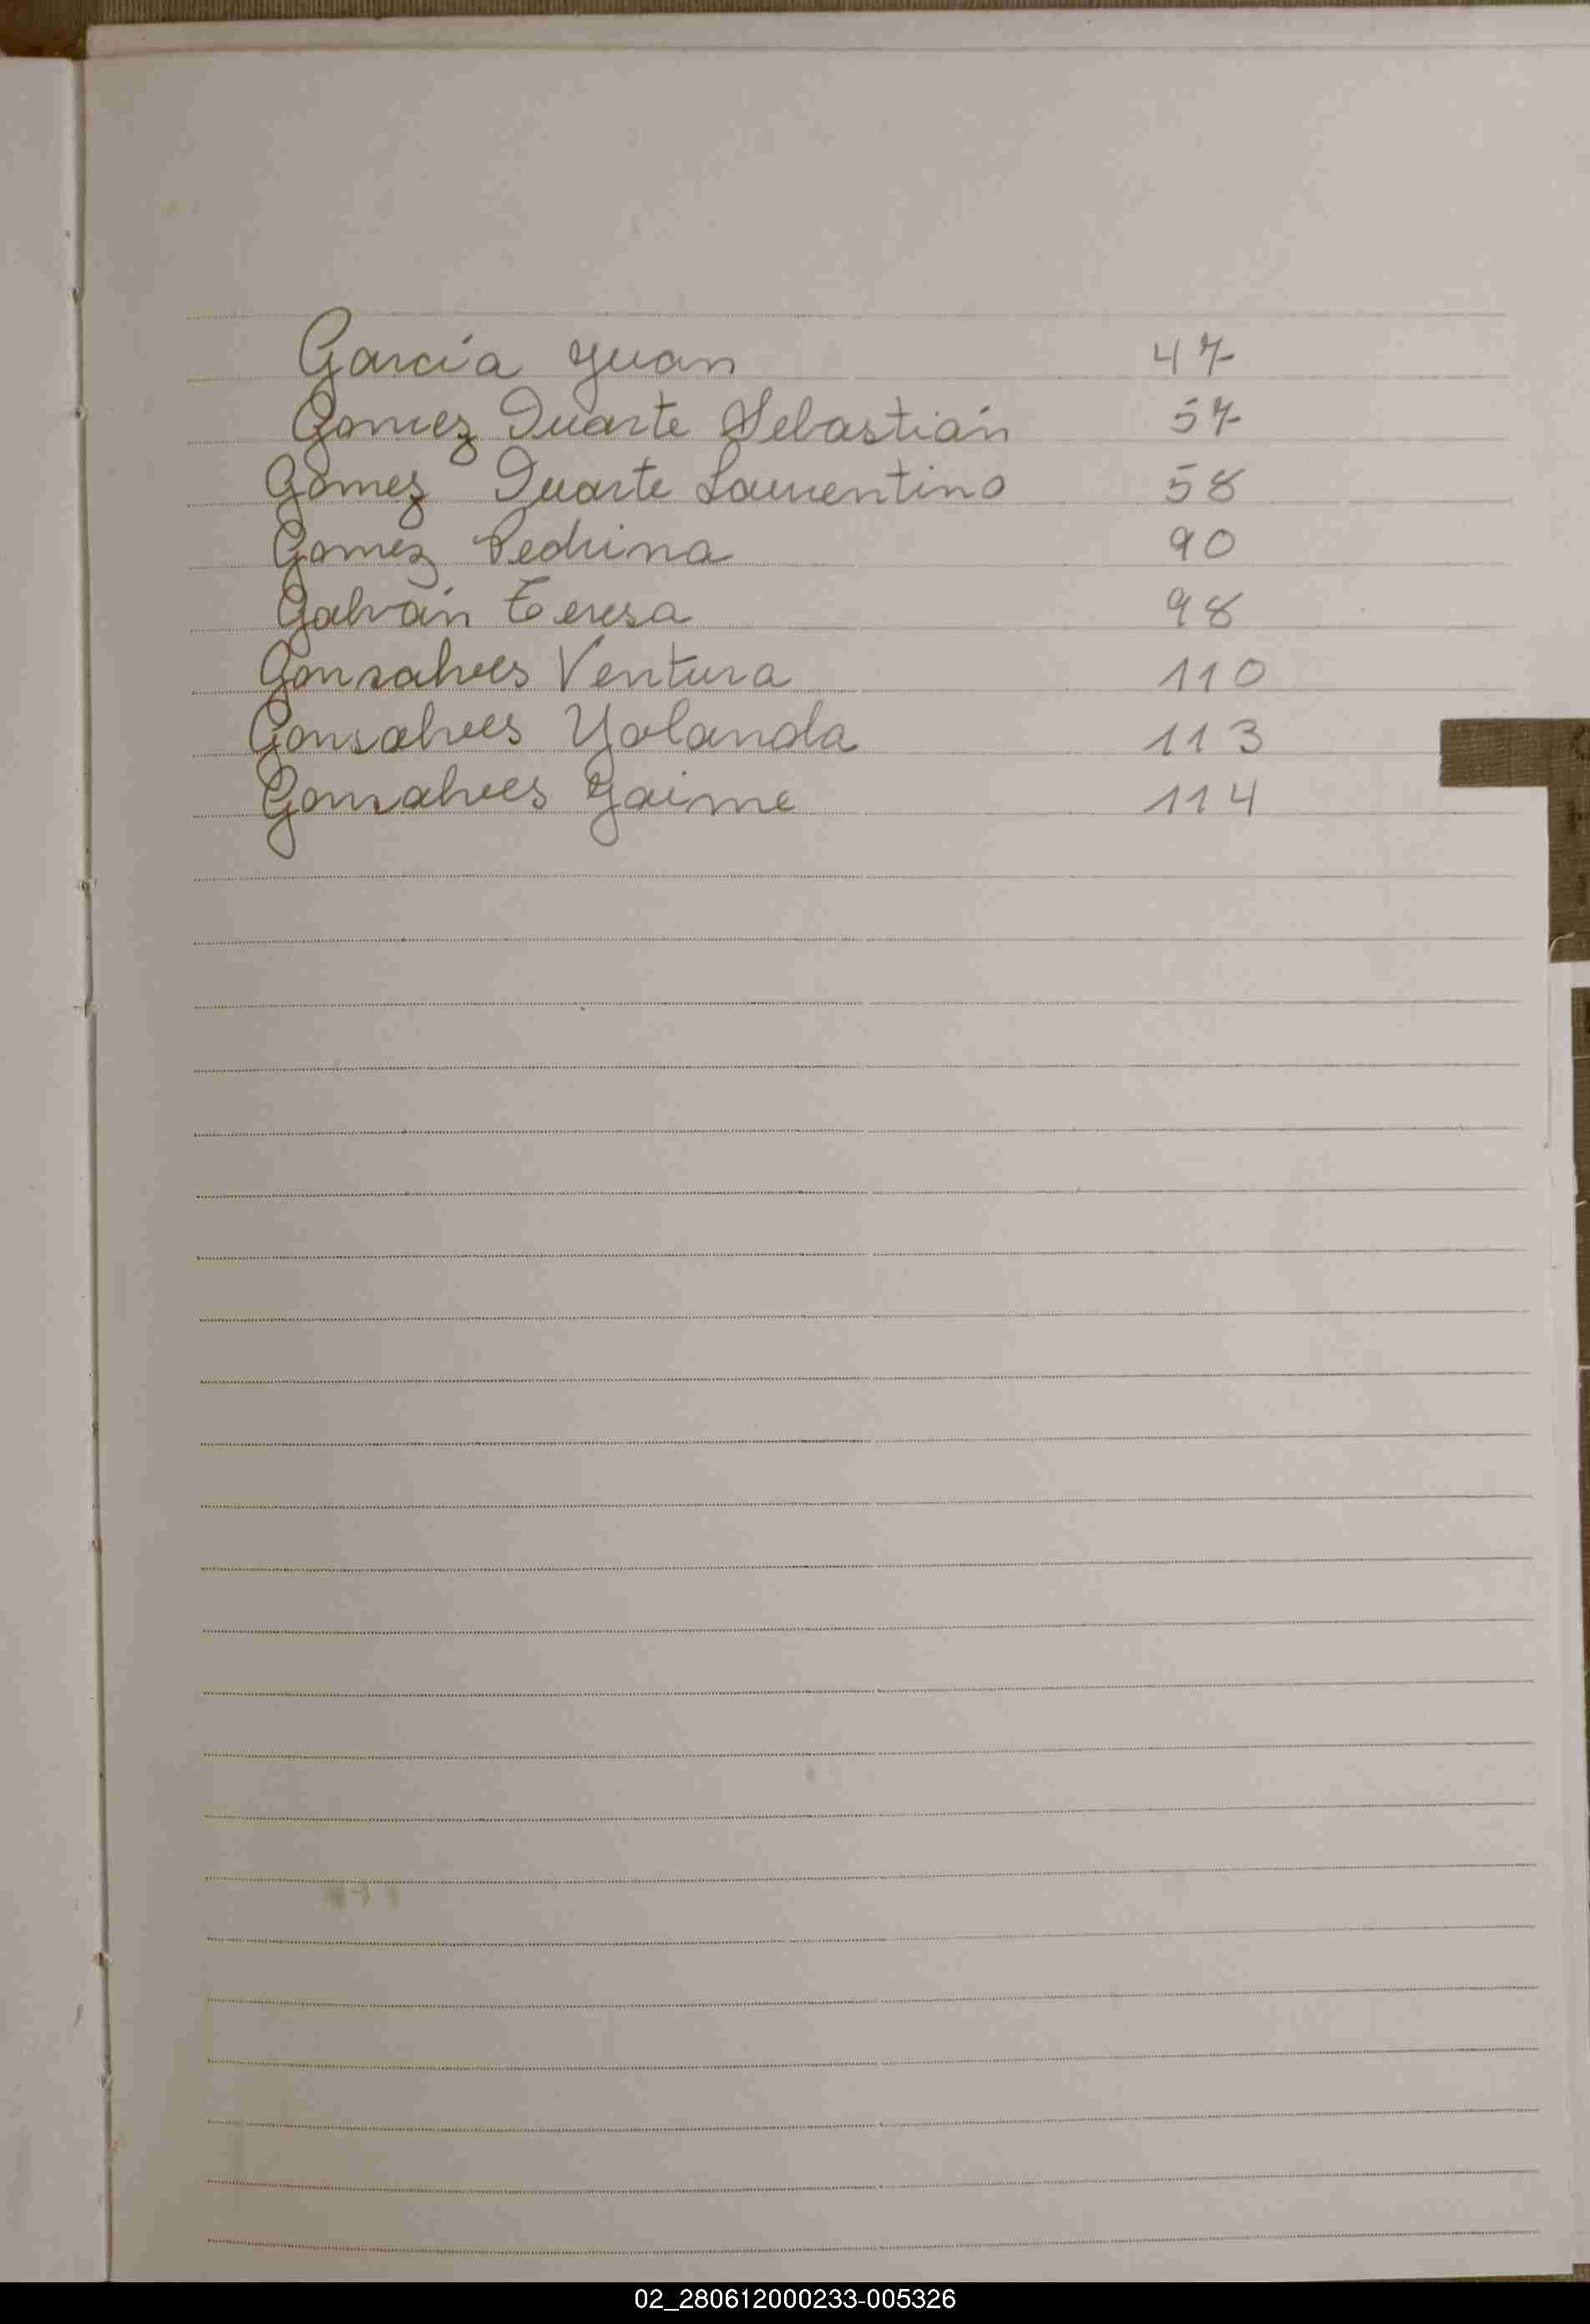 García Juan 47
Gomez Duarte Sebastián 57
Gomez Duarte Laurentino 58
Gomez Pedrina 90
Galván Teresa 98
Gonsalves Ventura 110
Gonsalves Yolanda 113
Gonsalves Jaime 114
02_280612000233-005326